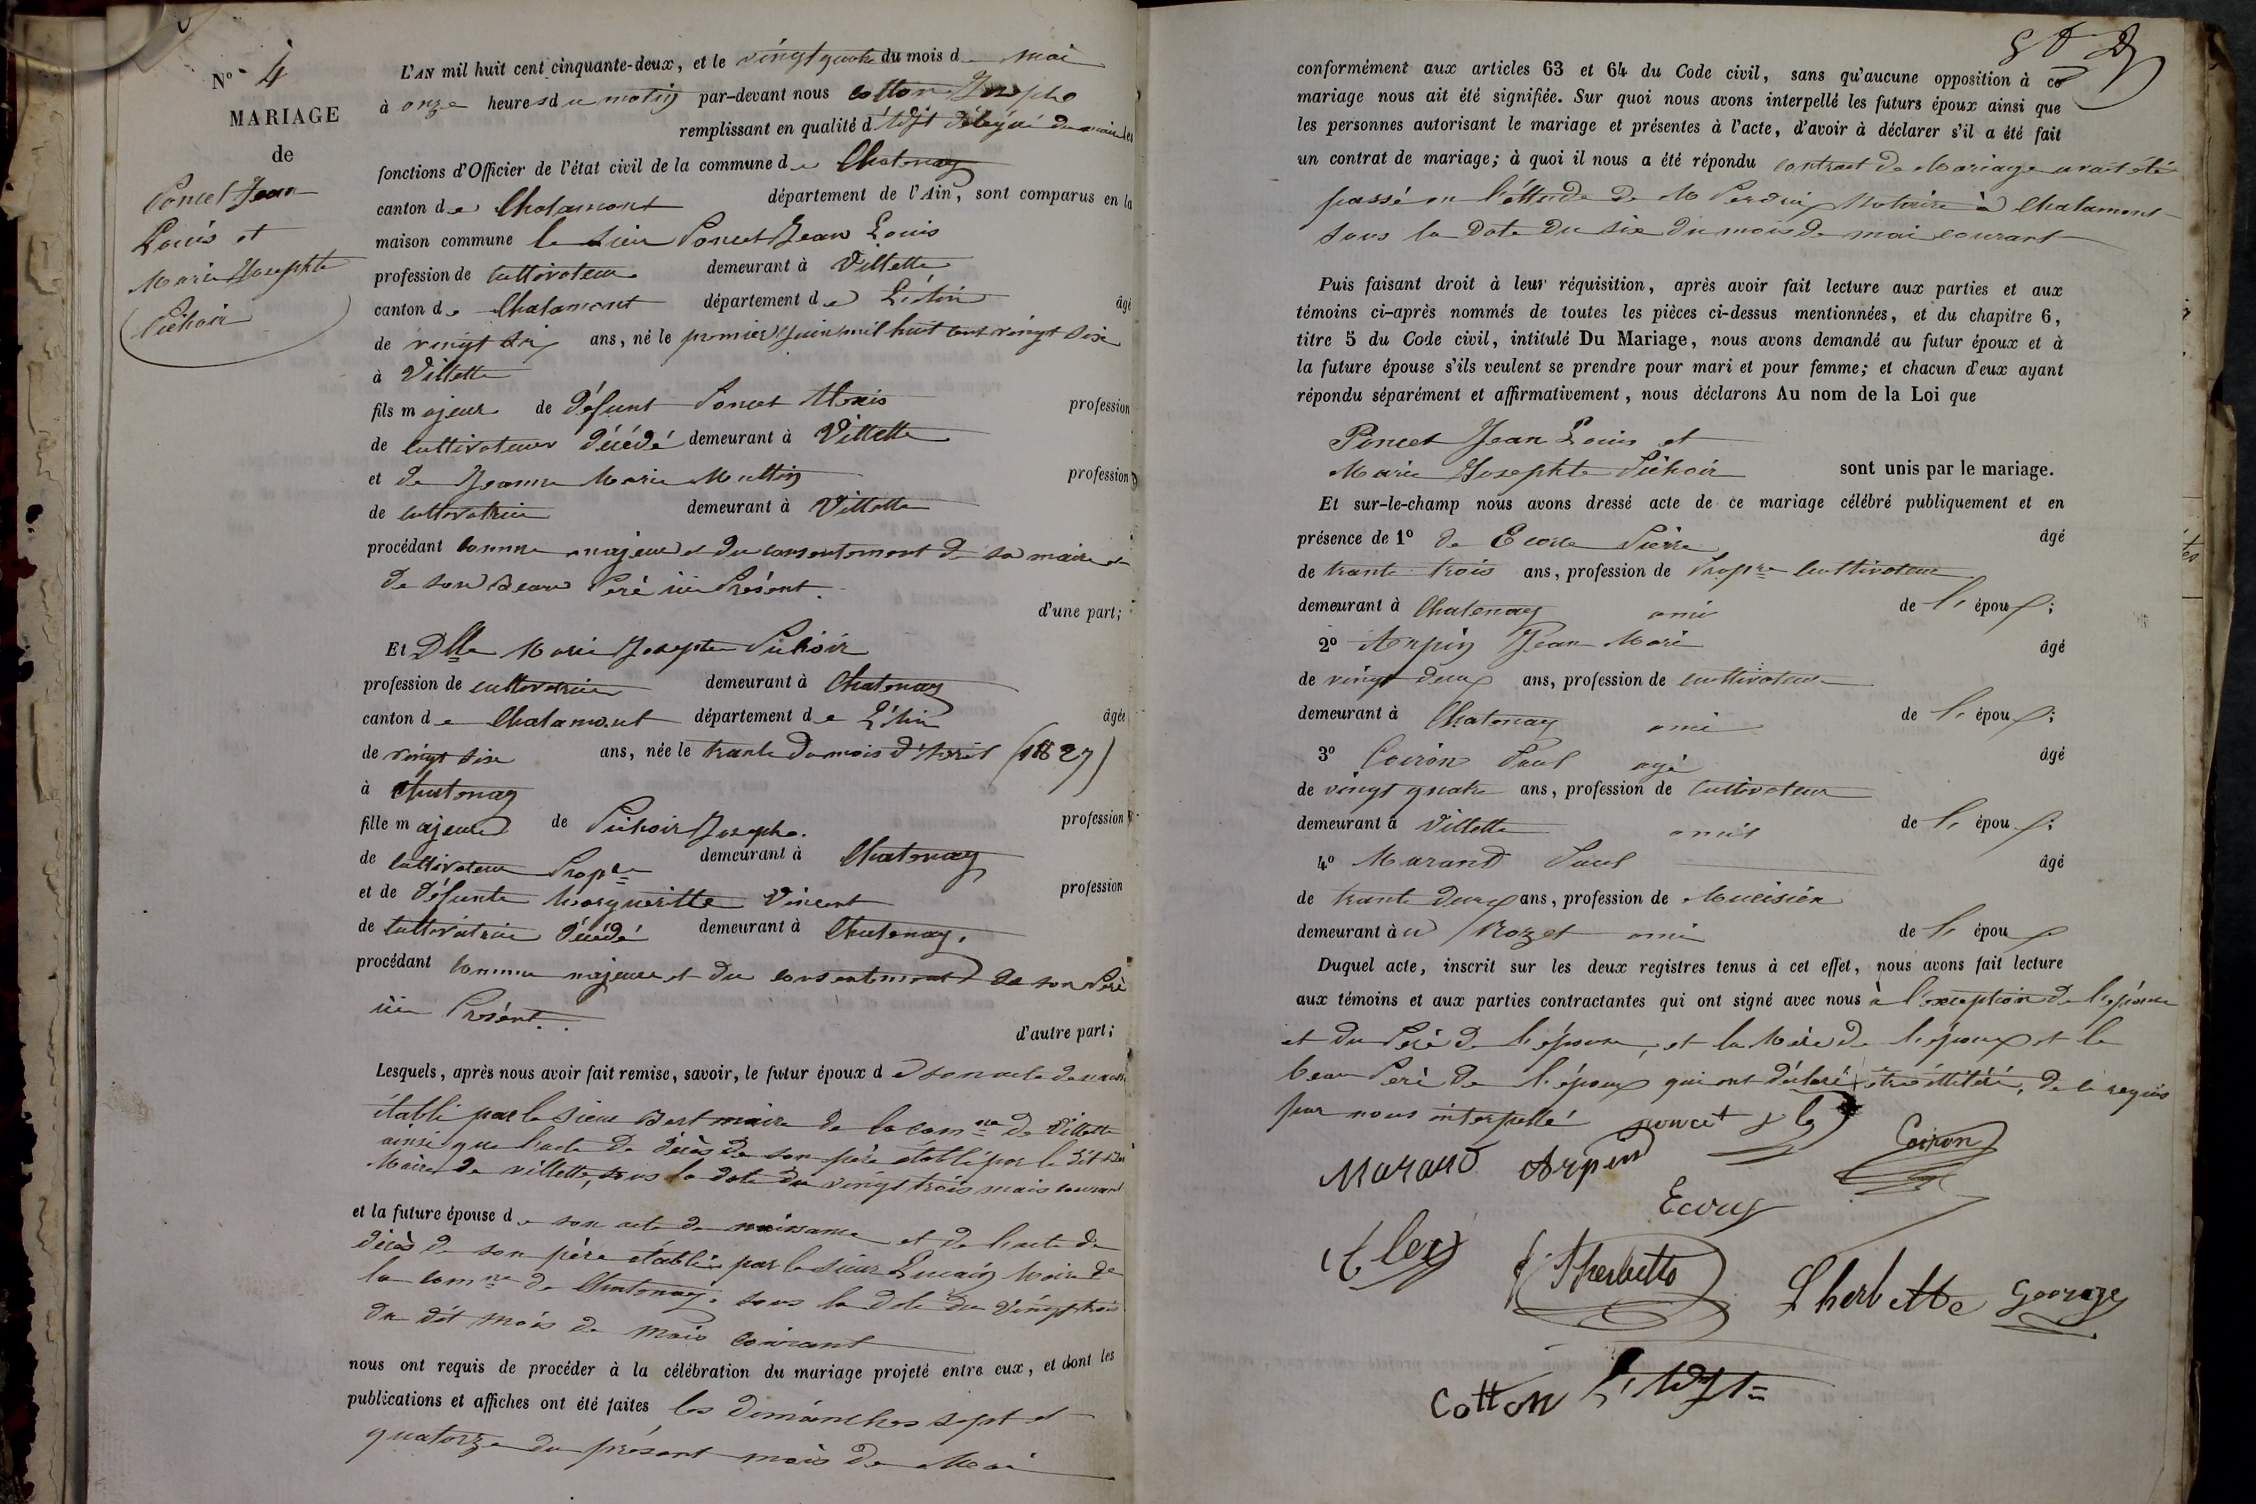 N° 4
MARIAGE
de
Poncet Jean
Louis et
Marie Josephte
Pichoir
L'AN mil huit cent cinquante-deux, et le vingt quatre du mois d mai
à onze heures du matin par-devant nous Cotton Josephe
remplissant en qualité d' délégué du maire les
fonctions d'Officier de l'état civil de la commune de Chatenay
canton de Chalamont département de l'Ain, sont comparus en la
maison commune le sieur Poncet Jean Louis
profession de cultivateur demeurant à Villette
canton de Chalamont département de L'Ain âgé
de vingt six ans, né le premier Juin mil huit cent vingt six
à Villette
fils majeur de défunt Poncet Alexis profession
de cultivateur décédé demeurant à Villette
et de Jeanne Marie Muttin profession
de cultivatrice demeurant à Villette
procédant comme majeur et du consentement de sa maire et
de son Beau Peré ici Présent.
d'une part;
Et Dlle Marie Josephte Pichoir
profession de cultivatrice demeurant à Chatenay
canton de Chalamont département de L'Ain âgée
de vingt six ans, née le trante du mois d'Avril (1827)
à Chatenay
fille majeure de Pichoir Josephe. profession
de cultivateur Propre demeurant à Chatenay
et de défunte Margueritte Vincent profession
de cultivatrice décédé demeurant à Chatenay.
procédant comme majeure et du consentement de son Peré
ici Présent.
d'autre part;
Lesquels, après nous avoir fait remise, savoir, le futur époux de son acte de
établi par le sieur maire de la comne de Villette
ainsi que l'acte de décès de son père établi par le dit
Maire de villette, sous la date du vingt trois mais courant
et la future épouse de son acte de naissance et de l'acte de
décès de son père établis par le sieur Maire de
la comne de Chatenay. sous la date du vingt trois
du dit mois de mais courant
nous ont requis de procéder à la célébration du mariage projeté entre eux, et dont les
publications et affiches ont été faites les dimanches sept et
quatorze du présent mois de Mai
conformément aux articles 63 et 64 du Code civil, sans qu'aucune opposition à ce
mariage nous ait été signifiée. Sur quoi nous avons interpellé les futurs époux ainsi que
les personnes autorisant le mariage et présentes à l'acte, d'avoir à déclarer s'il a été fait
un contrat de mariage; à quoi il nous a été répondu contract de Mariage avait été
passé en l'éttude de Me Perdrix Notaire à Chalamont
sous la date du six du mois de mai courant
Puis faisant droit à leur réquisition, après avoir fait lecture aux parties et aux
témoins ci-après nommés de toutes les pièces ci-dessus mentionnées, et du chapitre 6,
titre 5 du Code civil, intitulé Du Mariage, nous avons demandé au futur époux et à
la future épouse s'ils veulent se prendre pour mari et pour femme; et chacun d'eux ayant
répondu séparément et affirmativement, nous déclarons Au nom de la Loi que
Poncet Jean Louis et
Marie Josephte Pichoir sont unis par le mariage.
Et sur-le-champ nous avons dressé acte de ce mariage célébré publiquement et en
présence de 1° de Pierre âgé
de trante trois ans, profession de Propre Cultivateur
demeurant à Chatenay ami de l'époux;
2° Arpin Jean Marie âgé
de vingt deux ans, profession de cultivateur
demeurant à Chatenay ami de l'époux;
3° Coiron Paul agé âgé
de vingt quatre ans, profession de Cultivateur
demeurant à Villette amis de l'époux;
4° Marand Paul âgé
de trante deux ans, profession de Mucisién
demeurant à u Rozet ami de l'époux
Duquel acte, inscrit sur les deux registres tenus à cet effet, nous avons fait lecture
aux témoins et aux parties contractantes qui ont signé avec nous à l'exception de l'épouse
et du Peré de l'épouse, et la Mère de l'époux et le
beau Perè de l'époux qui ont déclaré étre illitéré, de ce requis
par nous interpellé poncet
Marand Arpin Coiron
Lherbette Lherbette George
Cotton